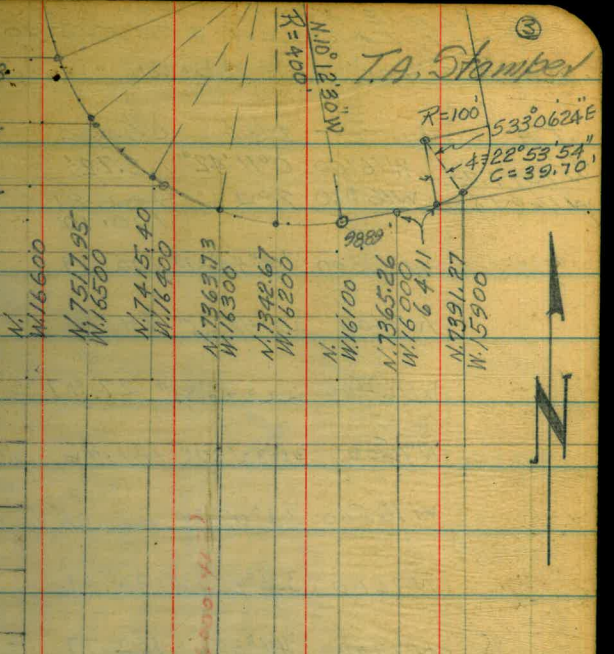 3
T.A. Stamper
R=400
N.10°12'30"W
R=100'
S33°06'24"E
Δ=22°53'54"
C=39.70'
98.89
N.
W.16600
N.7517.95
W.16500
N.7415.40
W.16400
N.7363.73
W.16300
N.7342.67
W.16200
N.
W.16100
N.7365.26
W.16000
64.11
N.7391.27
W.15900
N